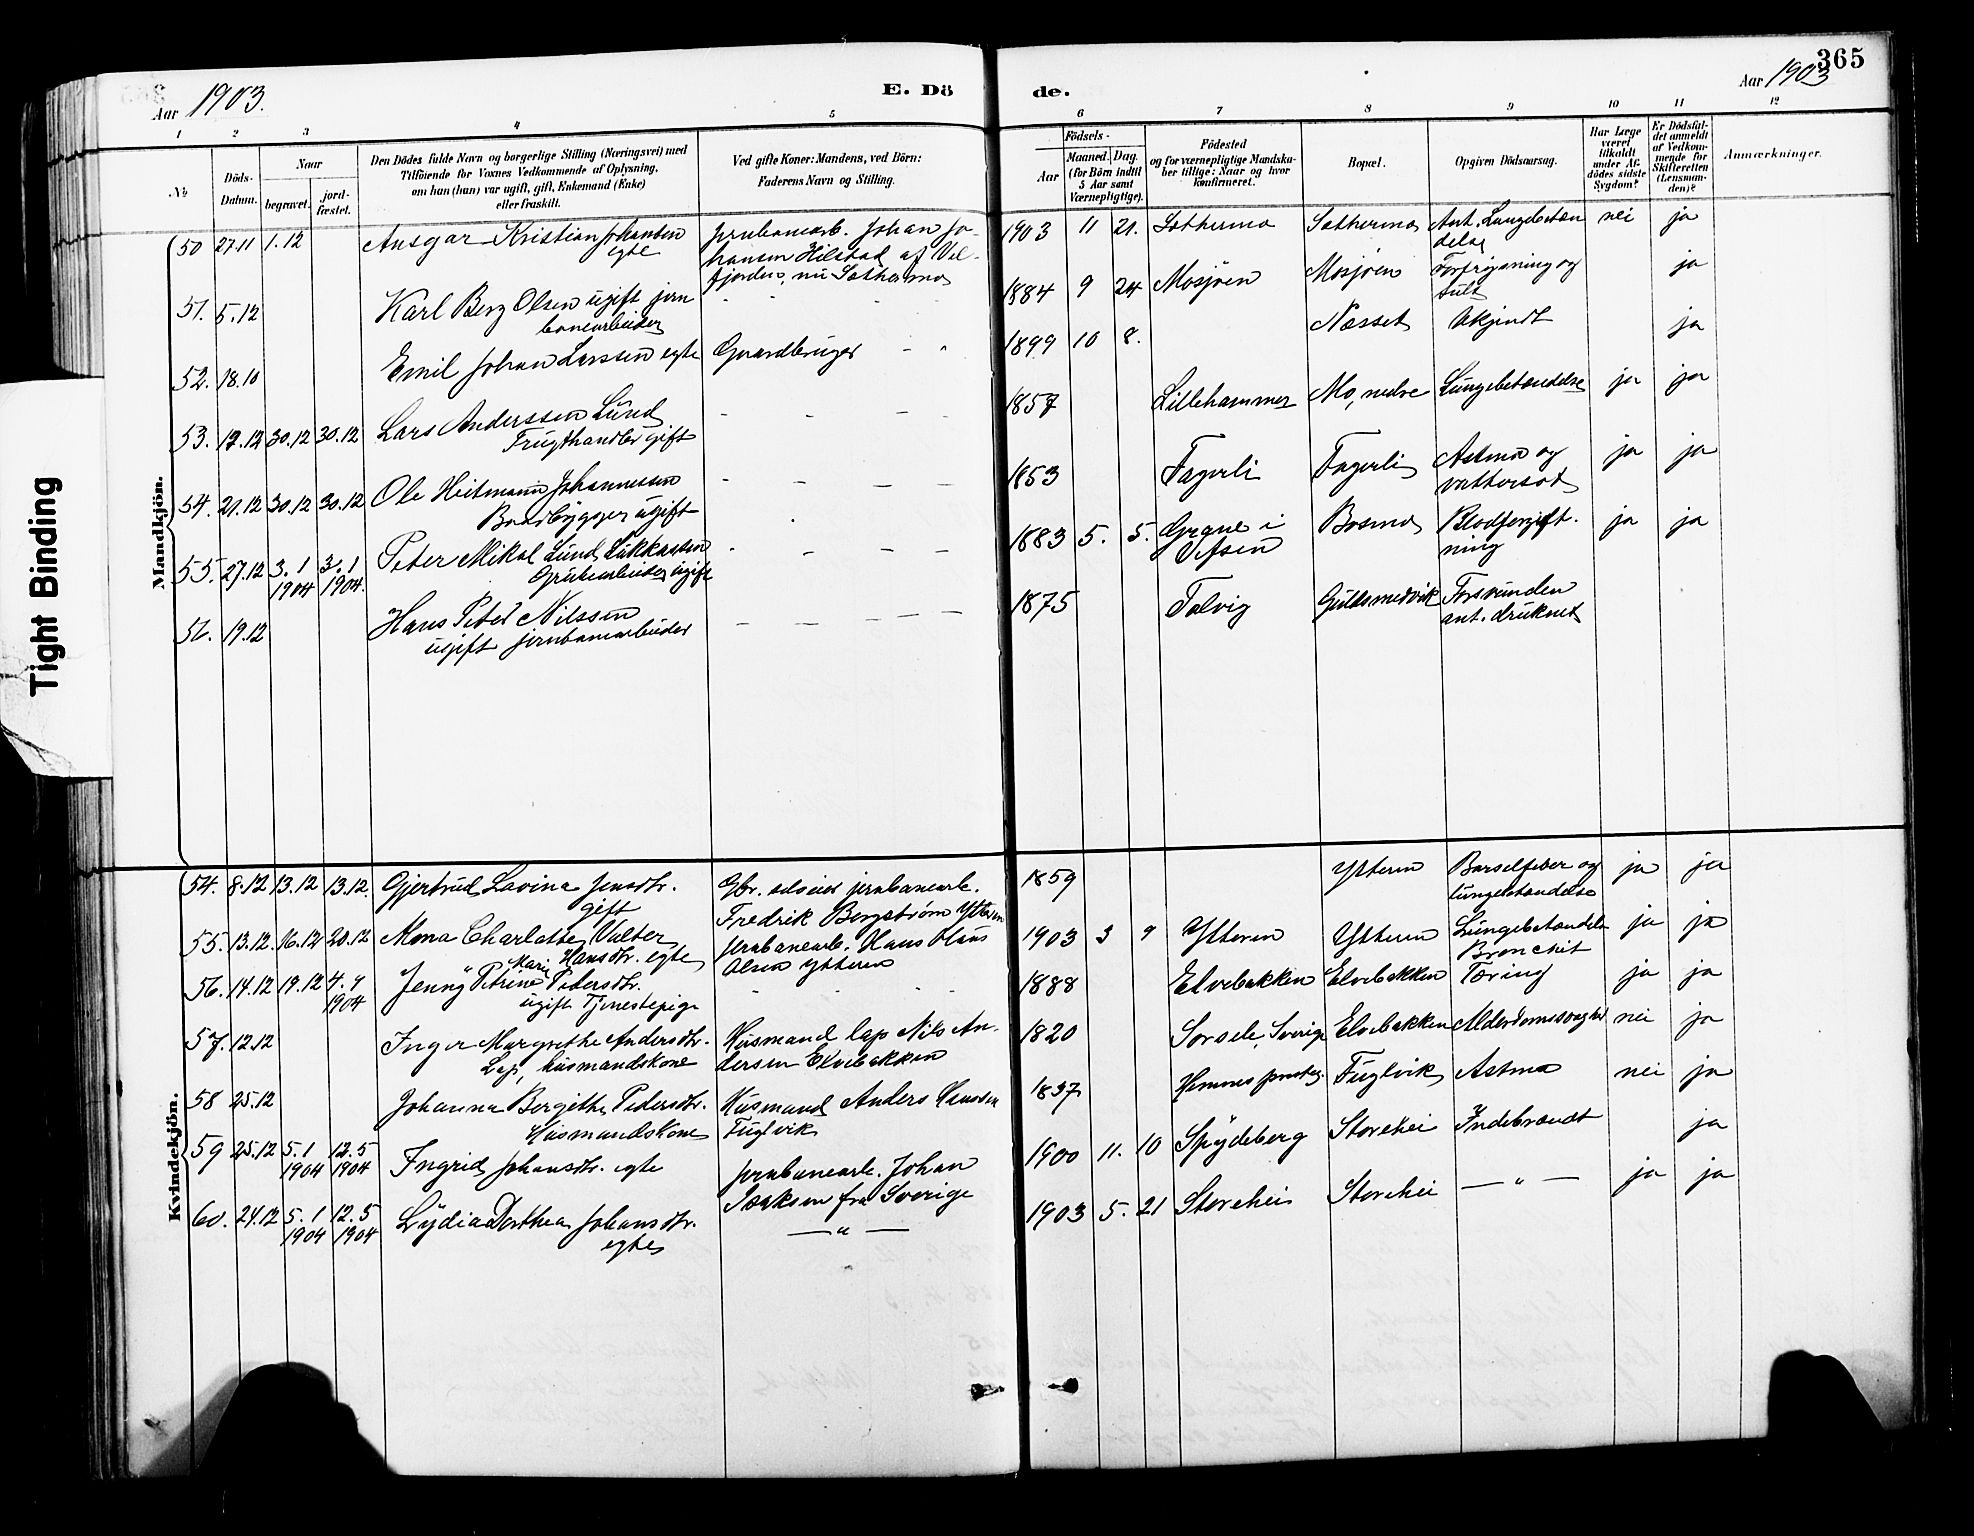 365
Aar 1903.
E. Döde.
Aar 1903
1 2 3 4 5 6 7 8 9 10 11 12
No
Döds-Datum.
Naar
begravet.
jord-fæstet.
Den Dödes fulde Navn og borgerlige Stilling (Næringsvei) med
Tilföiende for Voxnes Vedkommende af Oplysning,
om han (hun) var ugift, gift, Enkemand (Enke)
eller fraskilt.
Ved gifte Koner: Mandens, ved Børn:
Faderens Navn og Stilling.
Födsels-
Aar
Maaned. Dag.
(for Börn indtil
5 Aar samt
Værnepligtige).
Födested
og for værnepligtige Mandska-
ber tillige: Naar og hvor
konfirmeret.
Bopæl.
Opgiven Dödsaarsag.
Har Læge
været
tilkaldt
under Af-
dödes sidste
Sygdom?
Er Dödsfal-
det anmeldt
af Vedkom-
mende for
Skifteretten
(Lensman-
den)?
Anmærkninger.
Tight Binding
Mandkjön.
50 27.11 1.12 Ansgar Kristian Johansen
egte
jernbanearb. Johan Jo-
hansen Hilstad af Vel-
fjorden, nu Sathermo
1903 11 21. Sathermo Sathermo Ant. Lungebetæn
delse nei ja
51. 5.12 Karl Berg Olsen ugift jern
banearbeider
1884 9 24 Mosjøen Mosjøen Forfrysning og
sult ja
52. 18.10 Emil Johan Larssen egte Gaardbruger - "
1899 10 8. Næsset Ukjendt ja
53. 17.12 30.12 30.12 Lars Anderssen Lund
Frugthandler gift
1857 Lillehammer Mo, nedre Lungebetændelse ja ja
54. 21.12 30.12 30.12 Ole Heitmann Johannessen
Baadbygger ugift
1853 Fagerli Fagerli Astma og
vattersot ja ja
55. 27.12 3.1 1904 3.1 1904. Peter Mikal Lund Lukkassen
Grubearbeider ugift
1883 5. 5. Grane i
Vefsen Bosmo Blodforgift-
ning ja ja
56. 19.12 Hans Peter Nilssen
ugift jernbanearbeider
1875 Talvig Guldsmedvik Forsvunden
ant. druknet
Kvindekjön.
54. 8.12 13.12 13.12. Gjertrud Lovina Jensdtr.
gift
Gbr. selveier jernbanearb.
Fredrik Bergstrøm Ytteren
1859 Ytteren Barselfeber og
lungebetændelse ja ja
55. 13.12. 16.12 20.12 Alma Charlotte Valter
Marie Hansdtr. egte
jernbanearb. Hans Olaus
Olsen Ytteren
1903 3 9 Ytteren Ytteren Lungebetændelse
Bronchit ja ja
56. 14.12 19.12 4.4 1904 "Jenny" Petrine Pedersdtr.
ugift Tjenestepige
1888 Elvebakken Elvebakken Tæring ja ja
57. 12.12 Inger Margrethe Andersdtr.
Lap, husmandskone
Husmand lap Nils An-
dersen Elvebakken
1820 Sorsele, Sverige Elvebakken Alderdomssvaghed nei ja
58 25.12 Johanna Bergithe Pedersdtr.
Husmandskone
Husmand Anders Hansen
Fuglvik
1837 Hemnes prestegj. Fuglvik Astma nei ja
59 25.12 5.1 1904 12.5 1904 Ingrid Johansdtr. egte
jernbanearb. Johan
Isaksen fra Sverige
1900 11. 10 Spydeberg Storehei Indebrændt ja
60. 24.12 5.1 1904 12.5 1904 Lydia Dorthea Johansdtr.
egte
— " —
1903 5. 21 Storehei Storehei — " — ja ja